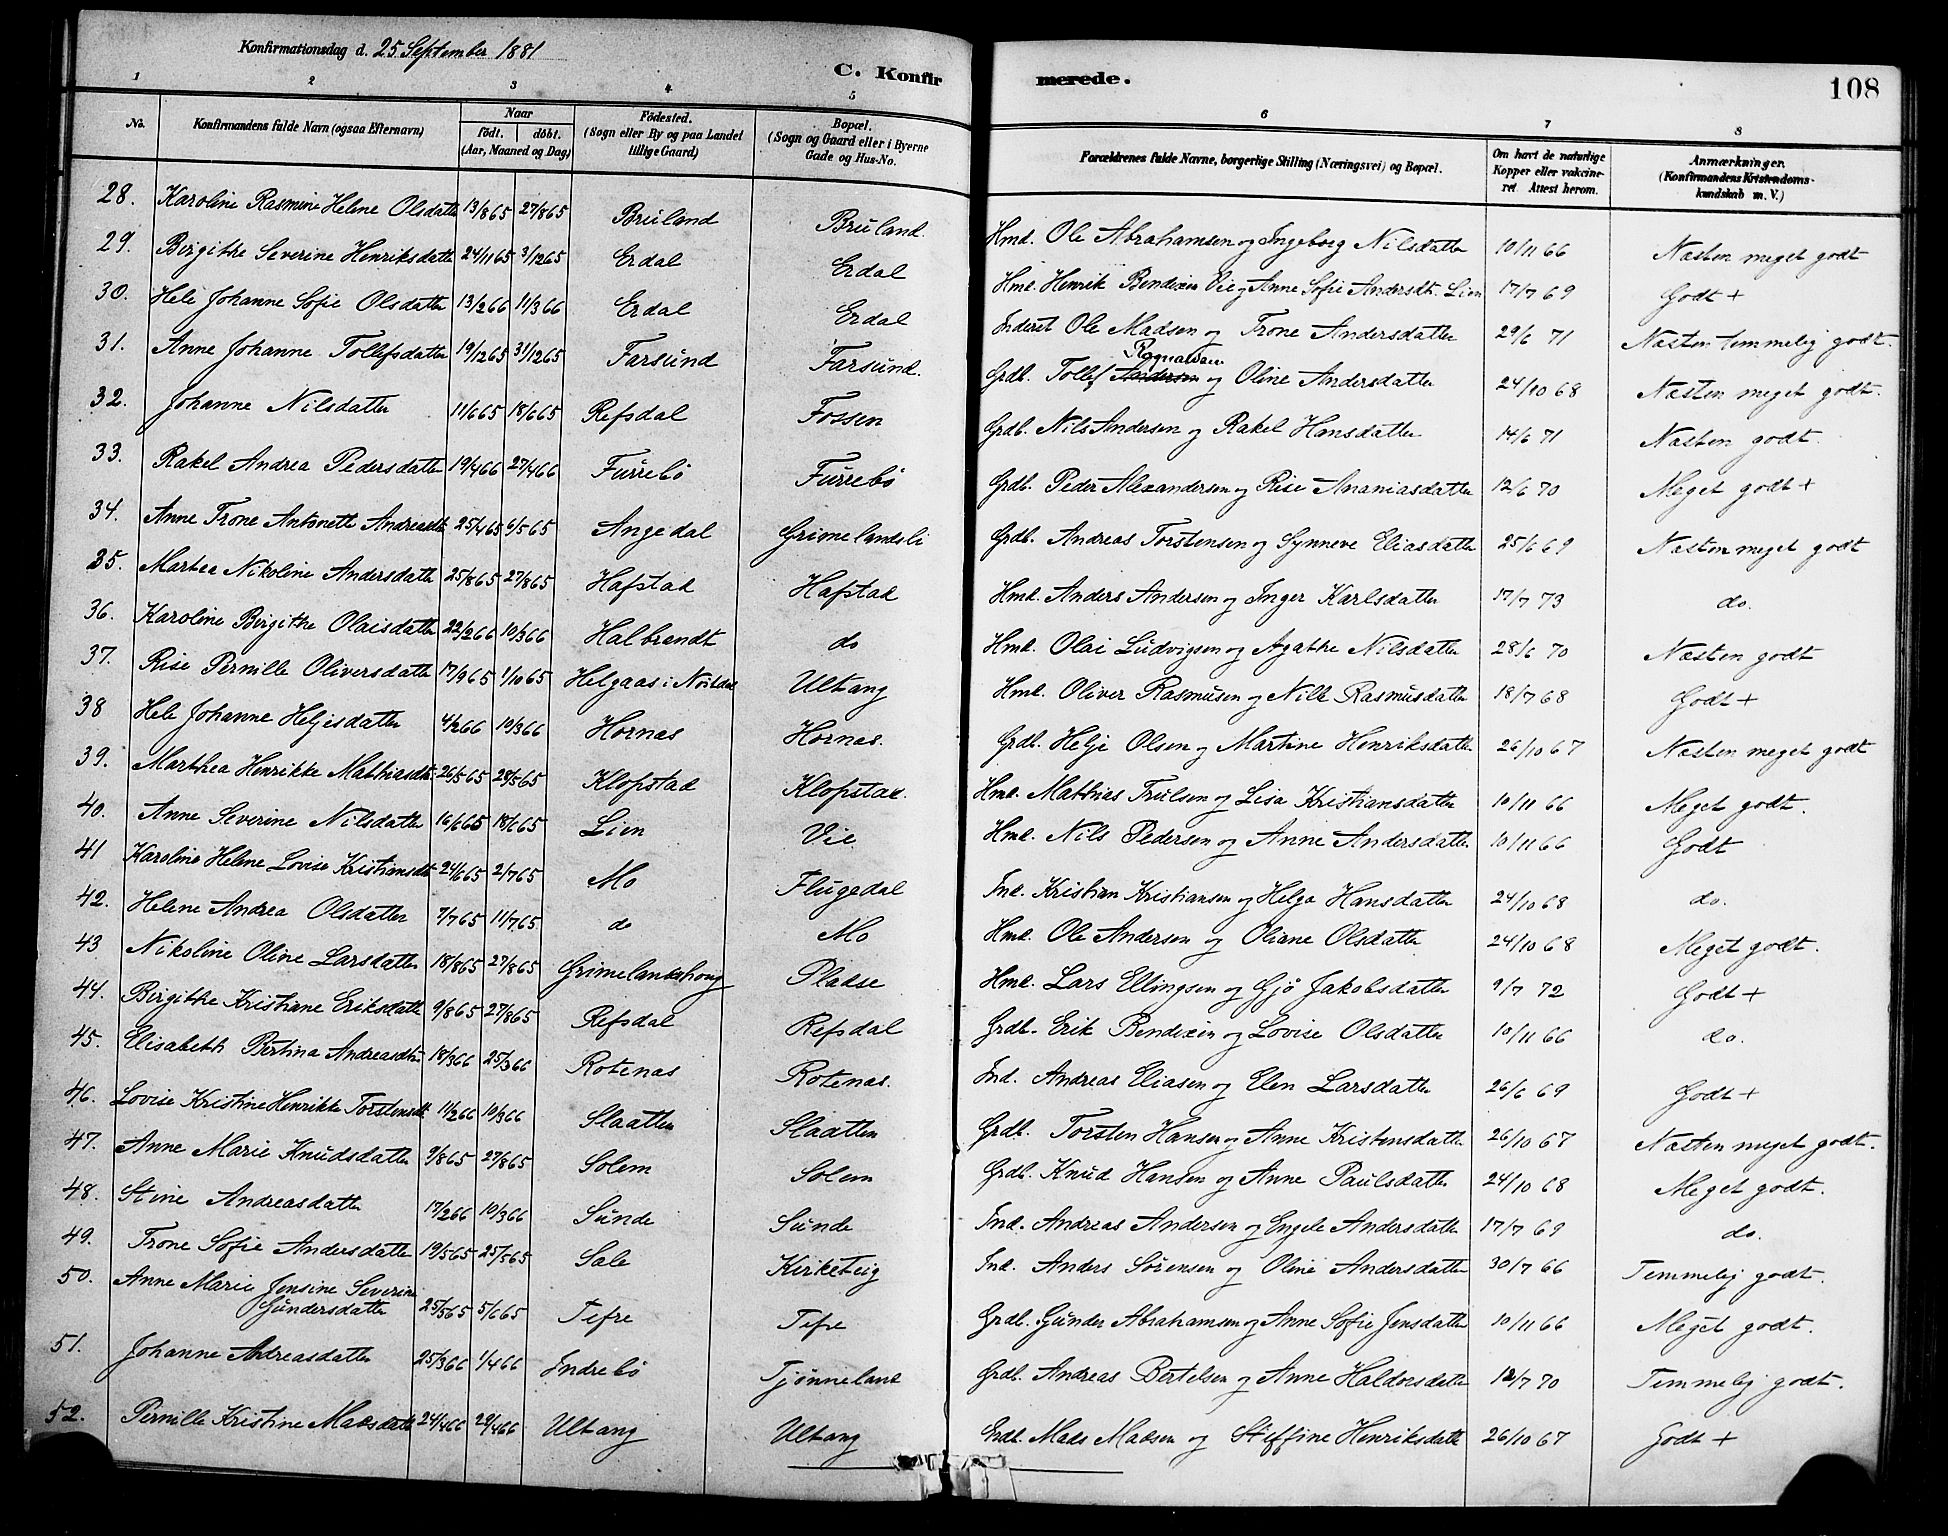 Konfirmationsdag d. 25 September 1881
C. Konfirmerede. 108
1 2 3 4 5 6 7 8
No. Konfirmandens fulde Navn (ogsaa Efternavn) Naar födt. döbt. (Aar, Maaned og Dag) Födested. (Sogn eller By og paa Landet tillige Gaard) Bopæl. (Sogn og Gaard eller i Byerne Gade og Hus-No. Forældrenes fulde Navne, borgerlige Stilling (Næringsvei) og Bopæl. Om havt de naturlige Kopper eller vakcineret. Attest herom. Anmærkninger. (Konfirmandens Kristendomskundskab m. V.)
28. Karoline Rasmine Helene Olsdatter 13/8 65 27/8 65 Bruland Bruland. Hmd. Ole Abrahamsen og Ingeborg Nilsdatter 10/11 66 Næsten meget godt
29. Birgithe Severine Henriksdatter 24/11 65 3/12 65 Erdal Erdal Hmd. Henrik Bendixen Vie og Anne Sofie Andersdt. Lien 17/7 69 Godt +
30. Hele Johanne Sofie Olsdatter 13/2 66 11/3 66 Erdal Erdal Inderst Ole Madsen og Trone Andersdatter 29/6 71 Næsten temmelig godt.
31. Anne Johanne Tollefsdatter 19/12 65 31/12 65 Farsund Farsund. Grdb. Tollef Andersen Ragnaldsen og Oline Andersdatter 24/10 68 Næsten meget godt.
32. Johanne Nilsdatter 11/6 65 18/6 65 Refsdal Fossen Grdb. Nils Andersen og Rakel Hansdatter 14/6 71 Næsten godt.
33. Rakel Andrea Pedersdatter 19/4 66 27/4 66 Furrebö Furrebö Grdb. Peder Alexandersen og Rise Ananiasdatter 12/6 70 Meget godt +
34. Anne Trone Antonette Andreasdt 25/4 65 6/5 65 Angedal Grimelandsli Grdb. Andreas Torstensen og Synneve Eliasdatter 25/6 69 Næsten meget godt
35. Marthea Nikoline Andersdatter 25/8 65 27/8 65 Hafstad Hafstad Hmd. Anders Andersen og Inger Karlsdatter 17/7 73 do.
36. Karoline Birgithe Olaisdatter 22/2 66 10/3 66 Halbrendt do Hmd. Olai Ludvigsen og Agathe Nilsdatter 28/6 70 Næsten godt
37. Rise Pernille Oliversdatter 17/9 65 1/10 65 Helgaas i Nöstdal Ultang Hmd. Oliver Rasmusen og Nille Rasmusdatter 18/7 68 Godt +
38 Hele Johanne Heljesdatter 4/2 66 10/3 66 Hornæs Hornæs. Grdb. Helje Olsen og Martine Henriksdatter 26/10 67 Næsten meget godt
39. Marthea Henrikke Mathiasdtr 26/5 65 28/5 65 Klopstad Klopstad. Hmd. Mathias Trulsen og Lisa Kristiansdatter 10/11 66 Meget godt.
40. Anne Severine Nilsdatter 16/6 65 18/6 65 Lien Vie Hmd. Nils Pedersen og Anne Andersdatter 10/11 66 Godt
41 Karoline Helene Lovise Kristiansdt 24/6 65 2/7 65 Mo Flugedal Ind. Kristian Kristiansen og Helga Hansdatter 24/10 68 do.
42. Helene Andrea Olsdatter 7/7 65 11/7 65 do Mo Hmd. Ole Andersen og Oliane Olsdatter 24/10 68 Meget godt.
43 Nikoline Oline Larsdatter 18/8 65 27/8 65 Grimelandshoug Pladse Hmd. Lars Ellingsen og Gjö Jakobsdatter 9/7 72 Godt +
44. Birgithe Kristiane Eriksdatt 9/8 65 27/8 65 Refsdal Refsdal Grdb. Erik Bendixen og Lovise Olsdatter 10/11 66 do.
45. Elisabeth Bertina Andreasdtr 18/3 66 25/3 66 Rotenæs Rotenæs. Ind. Andreas Eliasen og Elen Larsdatter 26/6 69 Godt +
46. Lovise Kristine Henrikke Torstensdt 11/2 66 10/3 66 Slaatten Slaatten Grdb. Torsten Hansen og Anne Kristensdatter 26/10 67 Næsten meget godt.
47. Anne Marie Knudsdatter 9/8 65 27/8 65 Solem Solem Grdb. Knud Hansen og Anne Paulsdatter 24/10 68 Meget godt.
48. Stine Andreasdatter 17/2 66 10/3 66 Sunde Sunde Ind. Andreas Andersen og Engele Andersdatter 17/7 69 do.
49. Trone Sofie Andersdatter 19/5 65 25/5 65 Sale Kirketeig Ind. Anders Sörensen og Oline Andersdatter 30/7 66 Temmelig godt.
50. Anne Marie Jensine Severine
Gundersdatter 25/5 65 5/6 65 Tefre Tefre Grdb. Gunder Abrahamsen og Anne Sofie Jensdatter 10/11 66 Meget godt.
51. Johanne Andreasdatter 25/3 66 1/4 66 Indrebö Tjönneland Grdb. Andreas Bertelsen og Anne Haldorsdatter 12/7 70 Temmelig godt.
52. Pernille Kristine Madsdatter 24/4 66 29/4 66 Ultang Ultang Grdb. Mads Madsen og Steffine Henriksdatt 26/10 67 Godt +